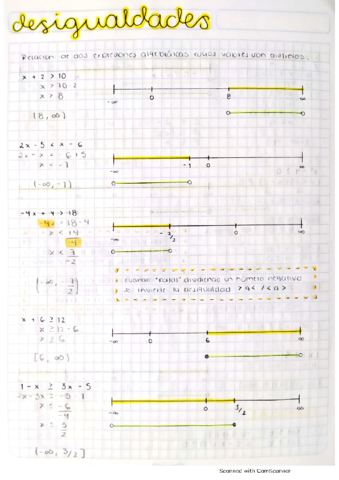 desigualdades
Relación de dos expresiones algebráicas cuyos valores son distintos.
x + 2 > 10
x > 10 - 2
x > 8
(8, ∞)
-∞ 0 8 ∞
2x - 5 < x - 6
2x - x < -6 + 5
x < -1
(-∞, -1)
-∞ -1 0 ∞
-4x + 4 > 18
-4x > 18 - 4
x < 14
-4
x < 7
-2
(-∞, -7/2)
-∞ 0 ∞
Cuando dividimos un número negativo
se invierte la desigualdad
x + 6 ≥ 12
x ≥ 12 - 6
x ≥ 6
[6, ∞)
-∞ 0 6 ∞
1 - x ≥ 3x - 5
-x - 3x ≥ -5 - 1
x ≤ -6
-4
x ≤ 3
2
(-∞, 3/2]
-∞ 0 3/2 ∞
Scanned with CamScanner